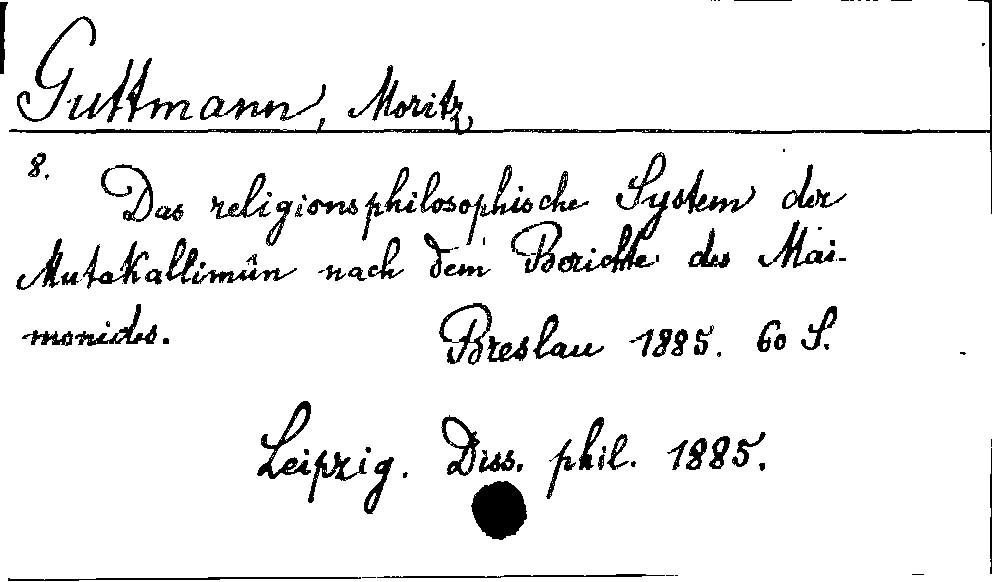 Guttmann, Moritz
8.
Das religionsphilosophische System der
Mutakallimûn nach dem Berichte des Mai-
monides.
Breslau 1885. 60 S.
Leipzig. Diss. phil. 1885.